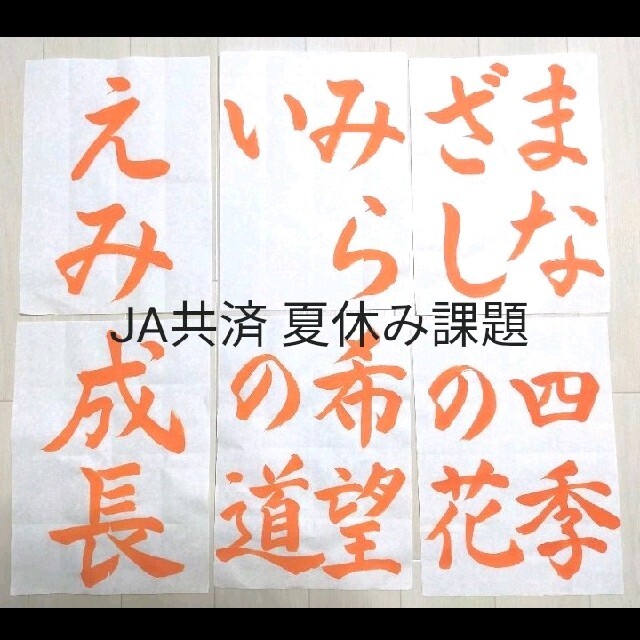 えみ
みら
い
まな
ざし
JA共済 夏休み課題
成長
希望
の道
四季
の花